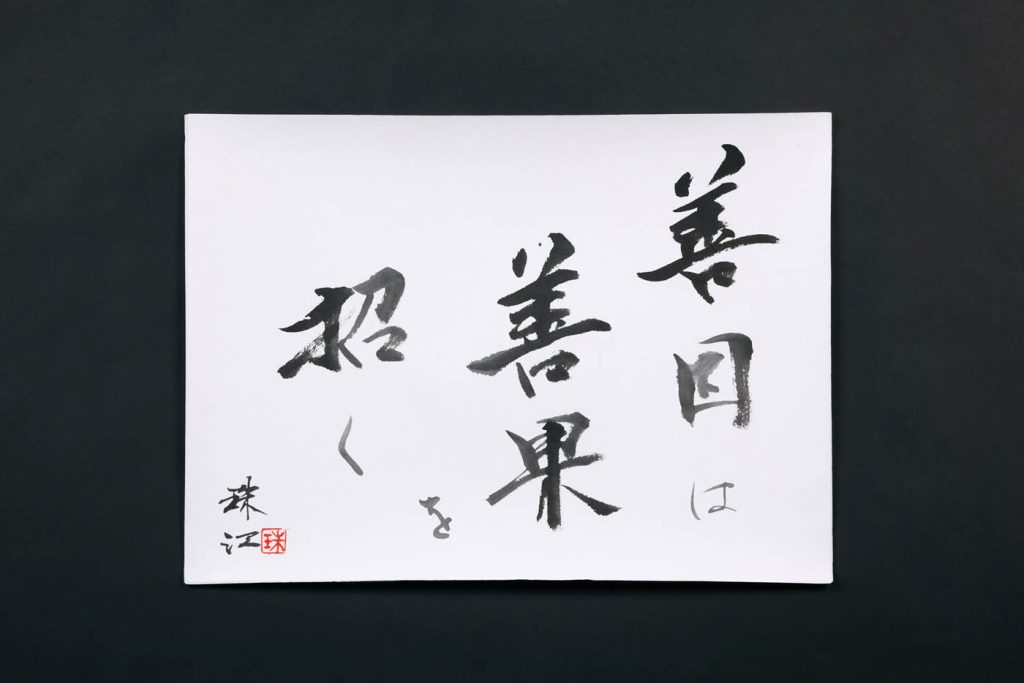 善因は
善果を
招く
珠江
珠